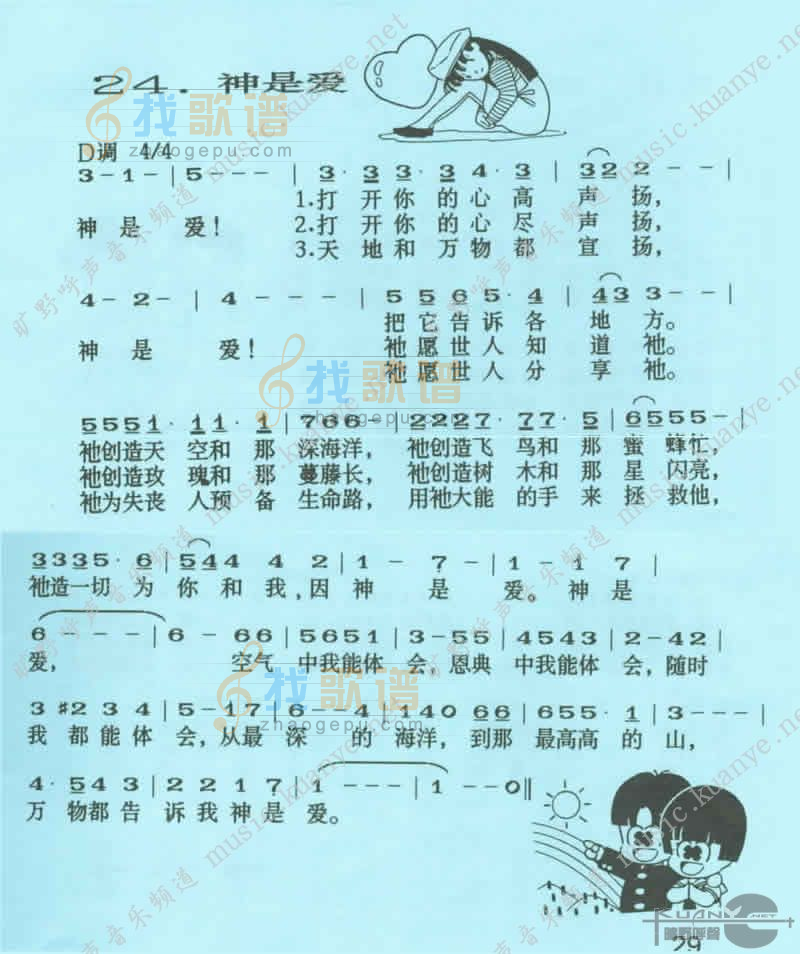 24. 神是爱
D调 4/4
3-1-|5---|3·33·3 4·3|322--|
神是 爱！ 1.打开你的心高声扬，
2.打开你的心尽声扬，
3.天地和万物都宣扬，
4-2-|4---|5 5 6 5·4|433--|
神是 爱！ 把它告诉各地方。
祂愿世人知道祂。
祂愿世人分享祂。
5551·11·1|766-|2227·77·5|6555-|
祂创造天空和那深海洋，祂创造飞鸟和那蜜蜂忙，
祂创造玫瑰和那蔓藤长，祂创造树木和那星闪亮，
祂为失丧人预备生命路，用祂大能的手来拯救他，
3335·6|544 4 2|1-7-|1-17|
祂造一切为你和我，因神是爱。神是
6---|6-66|5651|3-55|4543|2-42|
爱， 空气中我能体会，恩典中我能体会，随时
3 #2 3 4|5-17|6--4|140 66|655·1|3---|
我都能体会，从最深的海洋，到那最高高的山，
4·543|2217|1---|1--0‖
万物都告诉我神是爱。
29
找歌谱
zhaogepu.com
找歌谱
zhaogepu.com
找歌谱
zhaogepu.com
旷野呼声音乐频道 music.kuanye.net
KUANYE.NET
曠野呼聲